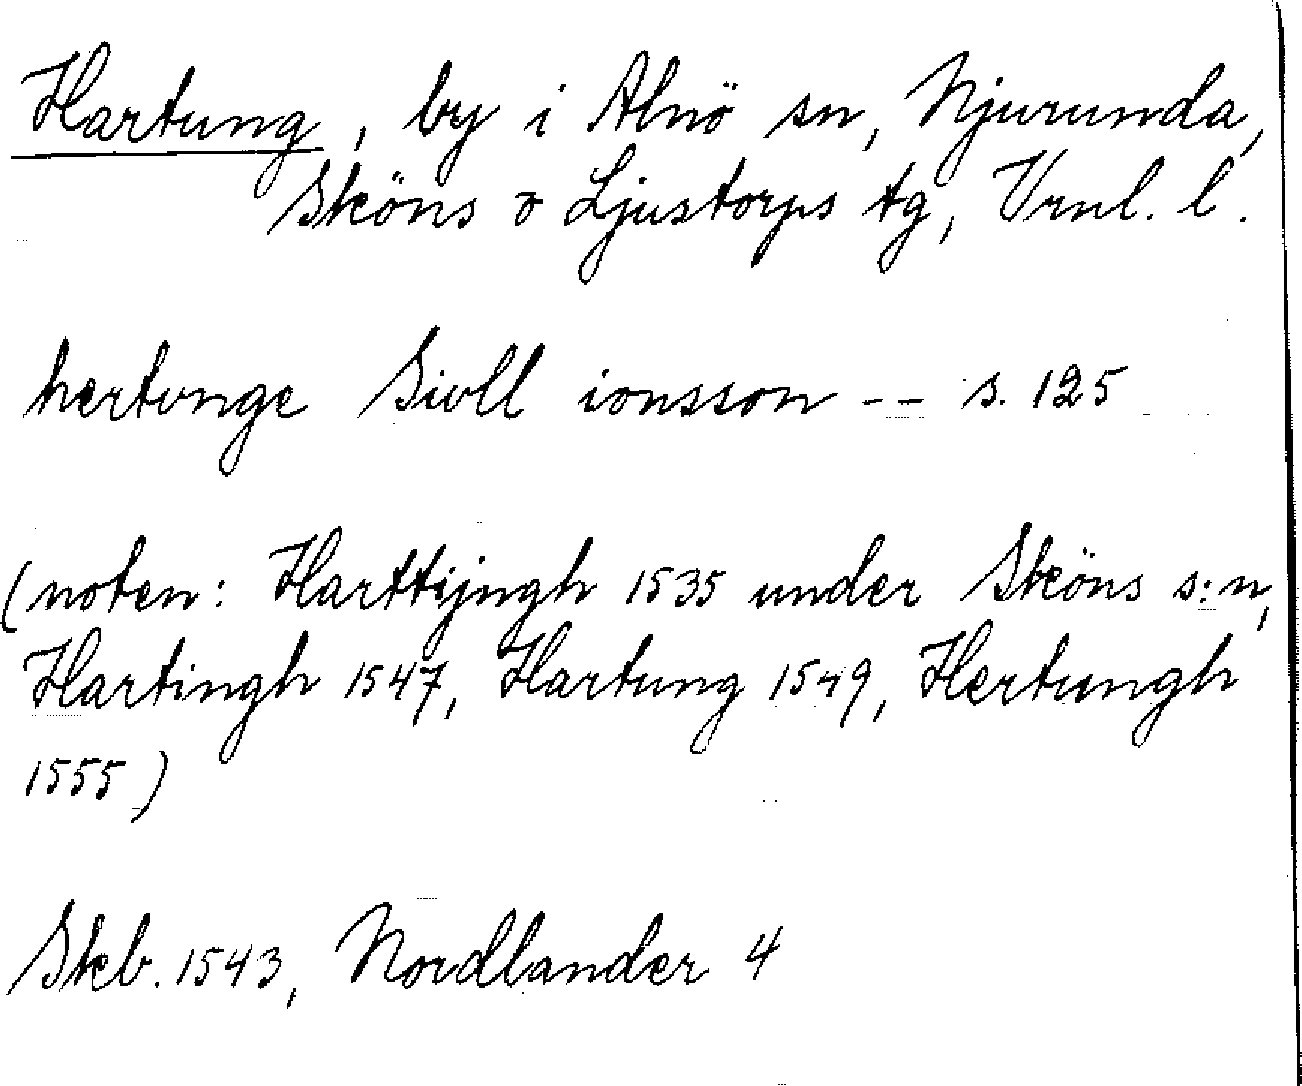 Hartung, by i Alnö sn, Njurunda,
Sköns o Ljustorps tg, Vrnl. l.
hertvnge Sivll ionsson -- s. 125
(noten: Harttijngh 1535 under Sköns s:n,
Hartingh 1547, Hartung 1549, Hertungh
1555)
Skb. 1543, Nordlander 4